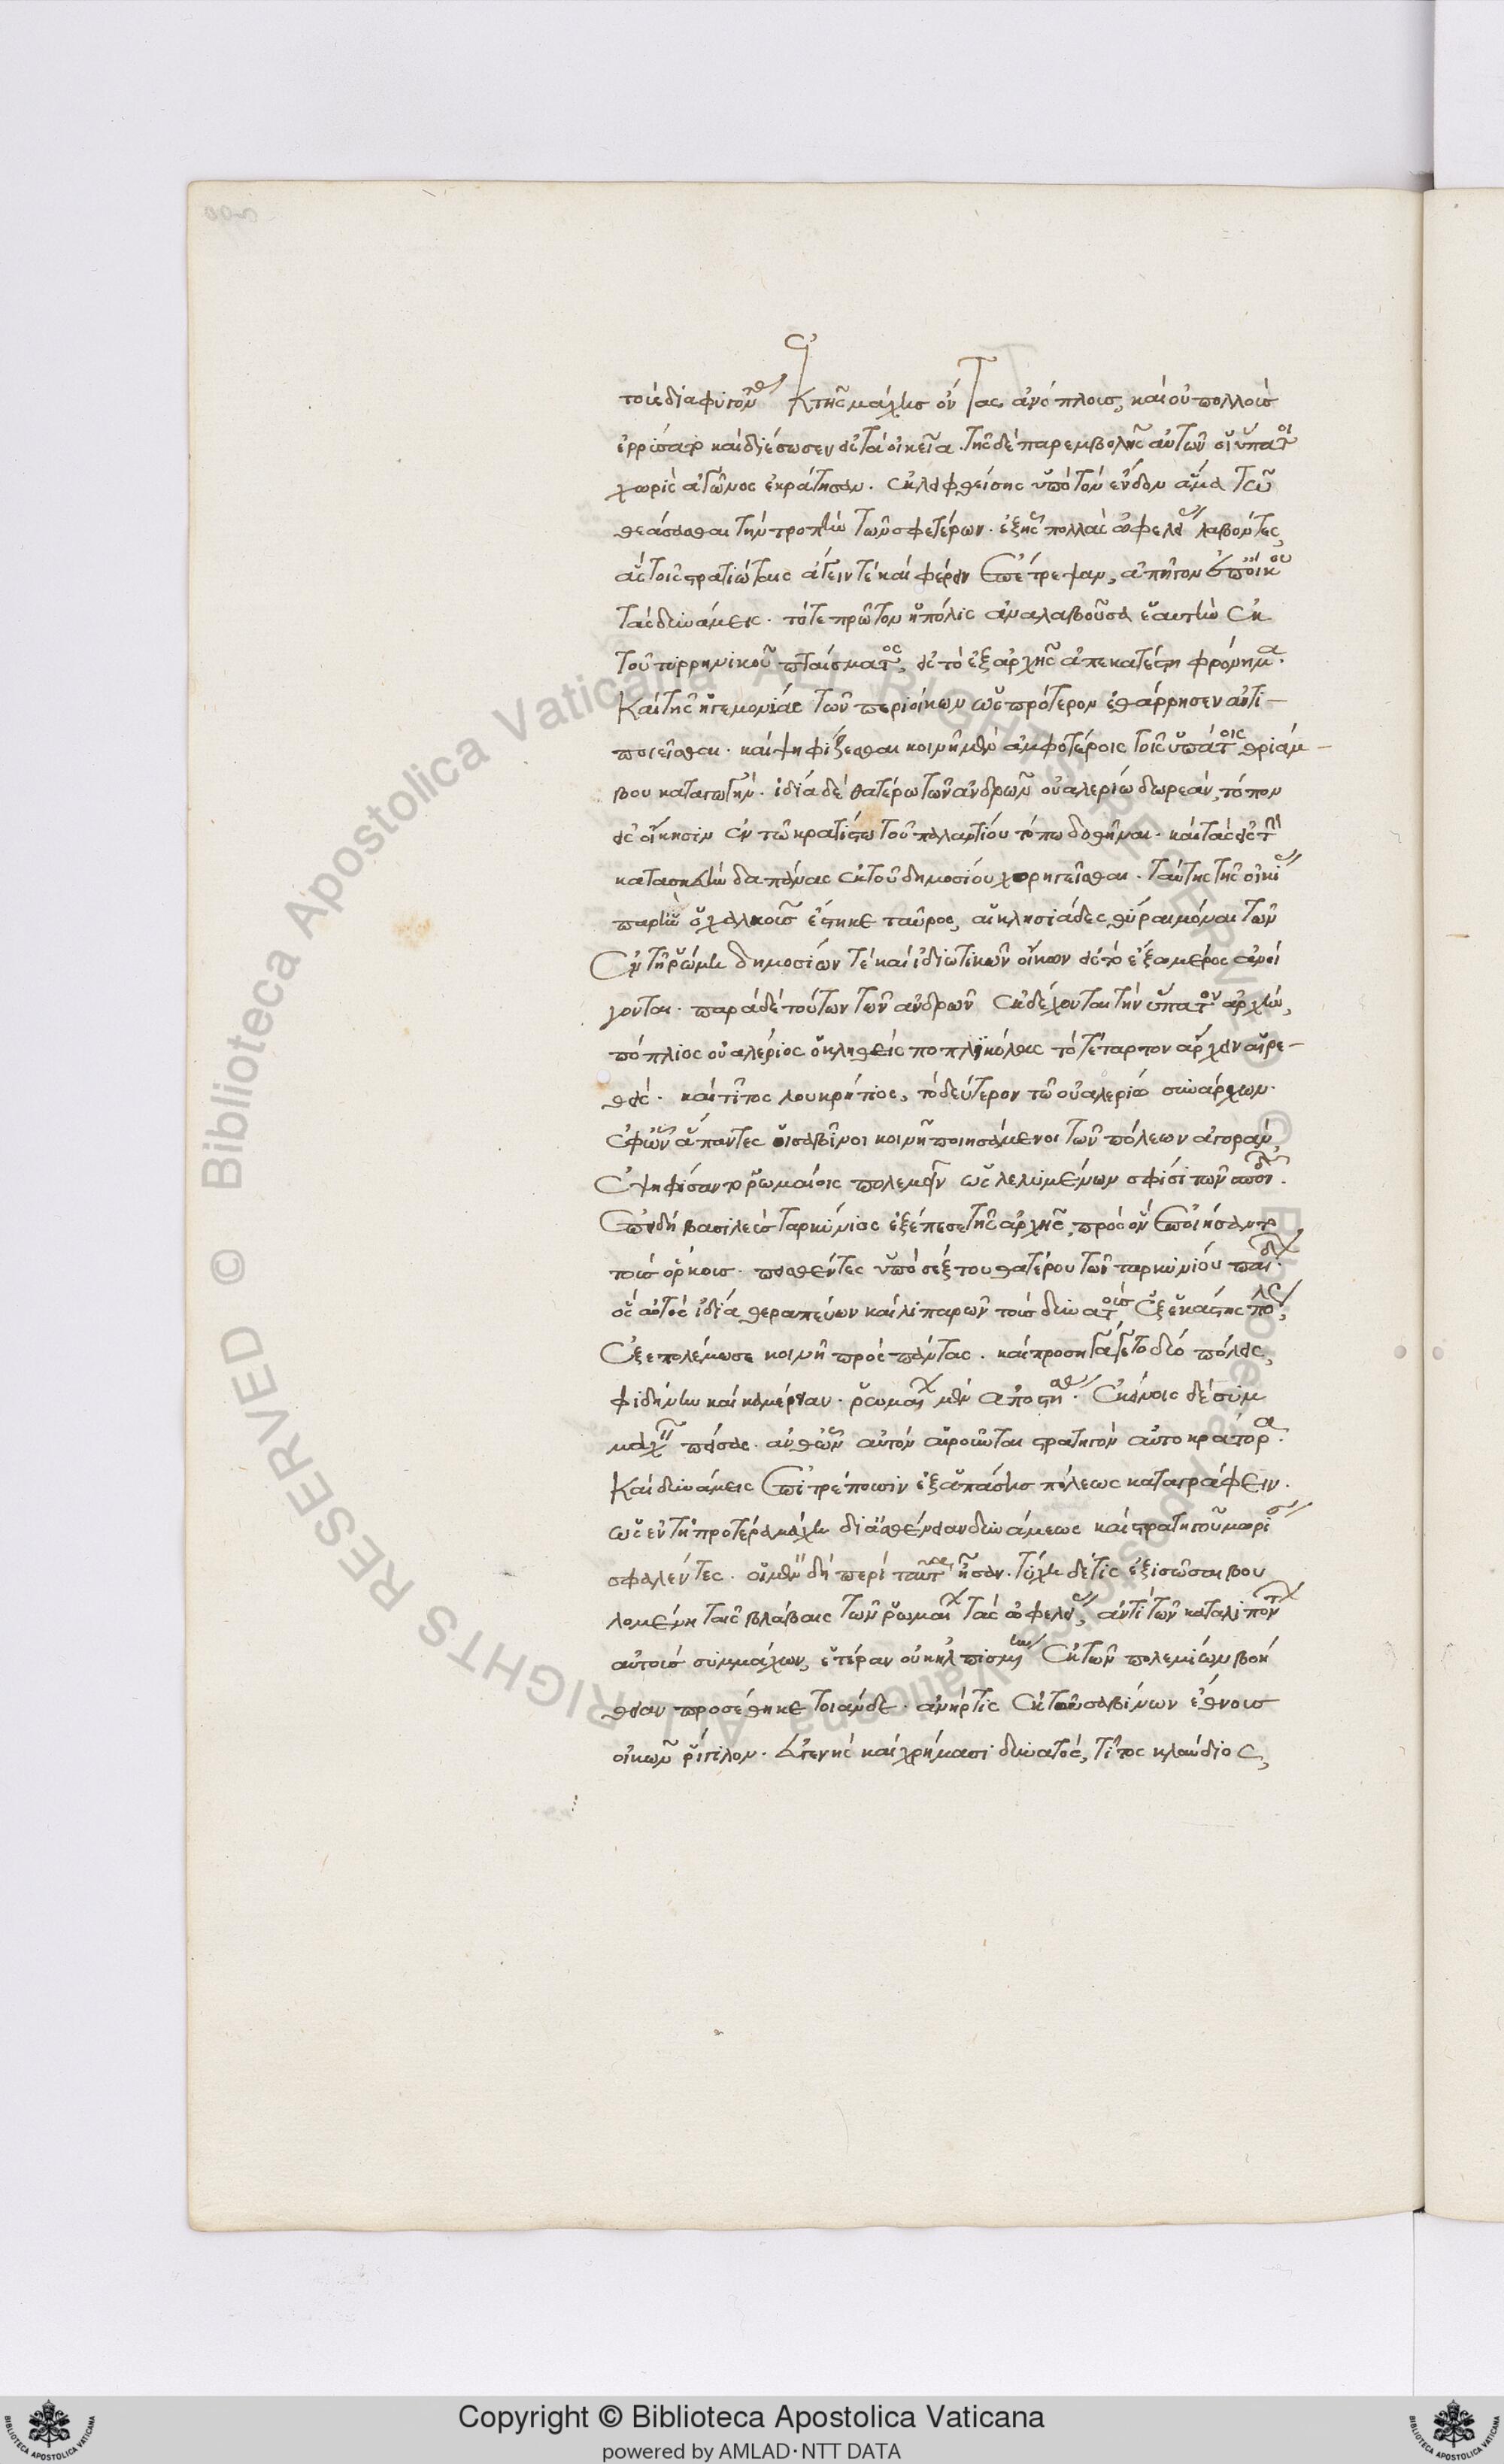 τοὺς διαφυγόντας ἐκ τῆς μάχης ὄντας ἀνόπλους, καὶ οὐ πολλοὺς
ἐρρύσατο καὶ διέσωσεν εἰς τὰ οἰκεῖα. τῆς δὲ παρεμβολῆς αὐτῶν οἱ ὕπατοι
χωρὶς ἀγῶνος ἐκράτησαν. ἐκλειφθείσης ὑπὸ τῶν ἔνδον ἅμα τῷ
θεάσασθαι τὴν τροπὴν τῶν σφετέρων. ἐξ ἧς πολλὰς ὠφελείας λαβόντες,
ἃς τοῖς στρατιώταις ἄγειν τὲ καὶ φέρειν ἐπέτρεψαν, ἀπῆγον ἐπ' οἴκου
τὰς δυνάμεις. τότε πρῶτον ἡ πόλις ἀναλαβοῦσα ἑαυτὴν ἐκ
τοῦ τυρρηνικοῦ πταίσματος, εἰς τὸ ἐξ ἀρχῆς ἀπεκατέστη φρόνημα.
καὶ τῆς ἡγεμονίας τῶν περιοίκων ὡς πρότερον ἐθάρρησεν ἀντι-
ποιεῖσθαι. καὶ ψηφίζεσθαι κοινῇ μὲν ἀμφοτέροις τοῖς ὑπάτοις θριάμ-
βου καταγωγήν. ἰδίᾳ δὲ θατέρῳ τῶν ἀνδρῶν οὐαλερίῳ δωρεάν, τόπον
εἰς οἴκησιν ἐν τῷ κρατίστῳ τοῦ παλαντίου τόπῳ δοθῆναι. καὶ τὰς εἰς τὴν
κατασκευὴν δαπάνας ἐκ τοῦ δημοσίου χορηγεῖσθαι. ταύτης τῆς οἰκίας
παρ' ἣν ὁ χαλκοῦς ἕστηκε ταῦρος, αἱ κλησιάδες θύραι μόναι τῶν
ἐν τῇ ῥώμῃ δημοσίων τὲ καὶ ἰδιωτικῶν οἴκων εἰς τὸ ἔξω μέρος ἀνοί
γονται. παρὰ δὲ τούτων τῶν ἀνδρῶν ἐκδέχονται τὴν ὕπατον ἀρχὴν,
πόπλιος οὐαλέριος ὁ κληθεὶς ποπλικόλας τὸ τέταρτον ἄρχειν αἱρε-
θεὶς. καὶ τῖτος λουκρήτιος, τὸ δεύτερον τῷ οὐαλερίῳ συνάρχων.
ἐφ' ὧν ἅπαντες οἱ σαβῖνοι κοινὴν ποιησάμενοι τῶν πόλεων ἀγοράν,
ἐψηφίσαντο ῥωμαίοις πολεμεῖν ὡς λελυμένων σφίσι τῶν σπονδῶν.
ἐπειδὴ βασιλεὺς ταρκύνιος ἐξέπεσε τῆς ἀρχῆς, πρὸς ὃν ἐποιήσαντο
τοὺς ὅρκους. πεισθέντες ὑπὸ σέξτου θατέρου τῶν ταρκυνίου παίδων.
ὃς αὐτὸς ἰδίᾳ θεραπεύων καὶ λιπαρῶν τοὺς δυνατοὺς ἐξ ἑκάστης πόλεως,
ἐξεπολέμωσε κοινῇ πρὸς πάντας. καὶ προσηγάγετο δύο πόλεις,
φιδήνην καὶ καμέριαν. ῥωμαίων μὲν ἀποστήσας. ἐκείνοις δὲ συμ
μάχους πείσας. ἀνθ' ὧν αὐτὸν αἱροῦνται στρατηγὸν αὐτοκράτορα.
καὶ δυνάμεις ἐπιτρέπουσιν ἐξ ἁπάσης πόλεως καταγράφειν.
ὡς ἐν τῇ προτέρᾳ μάχῃ δι' ἀσθένειαν δυνάμεως καὶ στρατηγοῦ μωρίαν
σφαλέντες. οἱ μὲν δὴ περὶ ταῦτα ἦσαν. τύχη δέ τις ἐξισῶσαι βου
λομένη ταῖς βλάβαις τῶν ῥωμαίων τὰς ὠφελείας, ἀντὶ τῶν καταλιπόντων
αὐτοὺς συμμάχων, ἑτέραν οὐκ ἠλπισμένην ἐκ τῶν πολεμίων βοή
θειαν προσέθηκε τοιάνδε. ἀνήρ τις ἐκ τοῦ σαβίνων ἔθνους
οἰκῶν ῥίγιλον. εὐγενὴς καὶ χρήμασι δυνατός, τῖτος κλαύδιος,
Copyright © Biblioteca Apostolica Vaticana
powered by AMLAD·NTT DATA